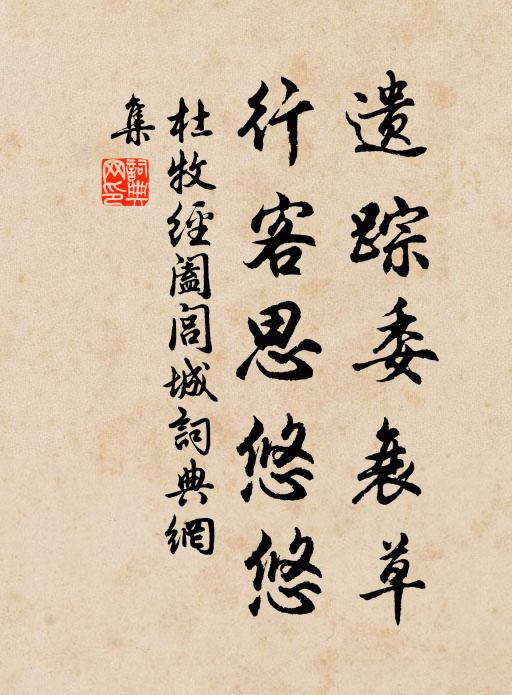 遗踪委衰草
行客思悠悠
杜牧經阖闾城詞典網
集
詞典网印